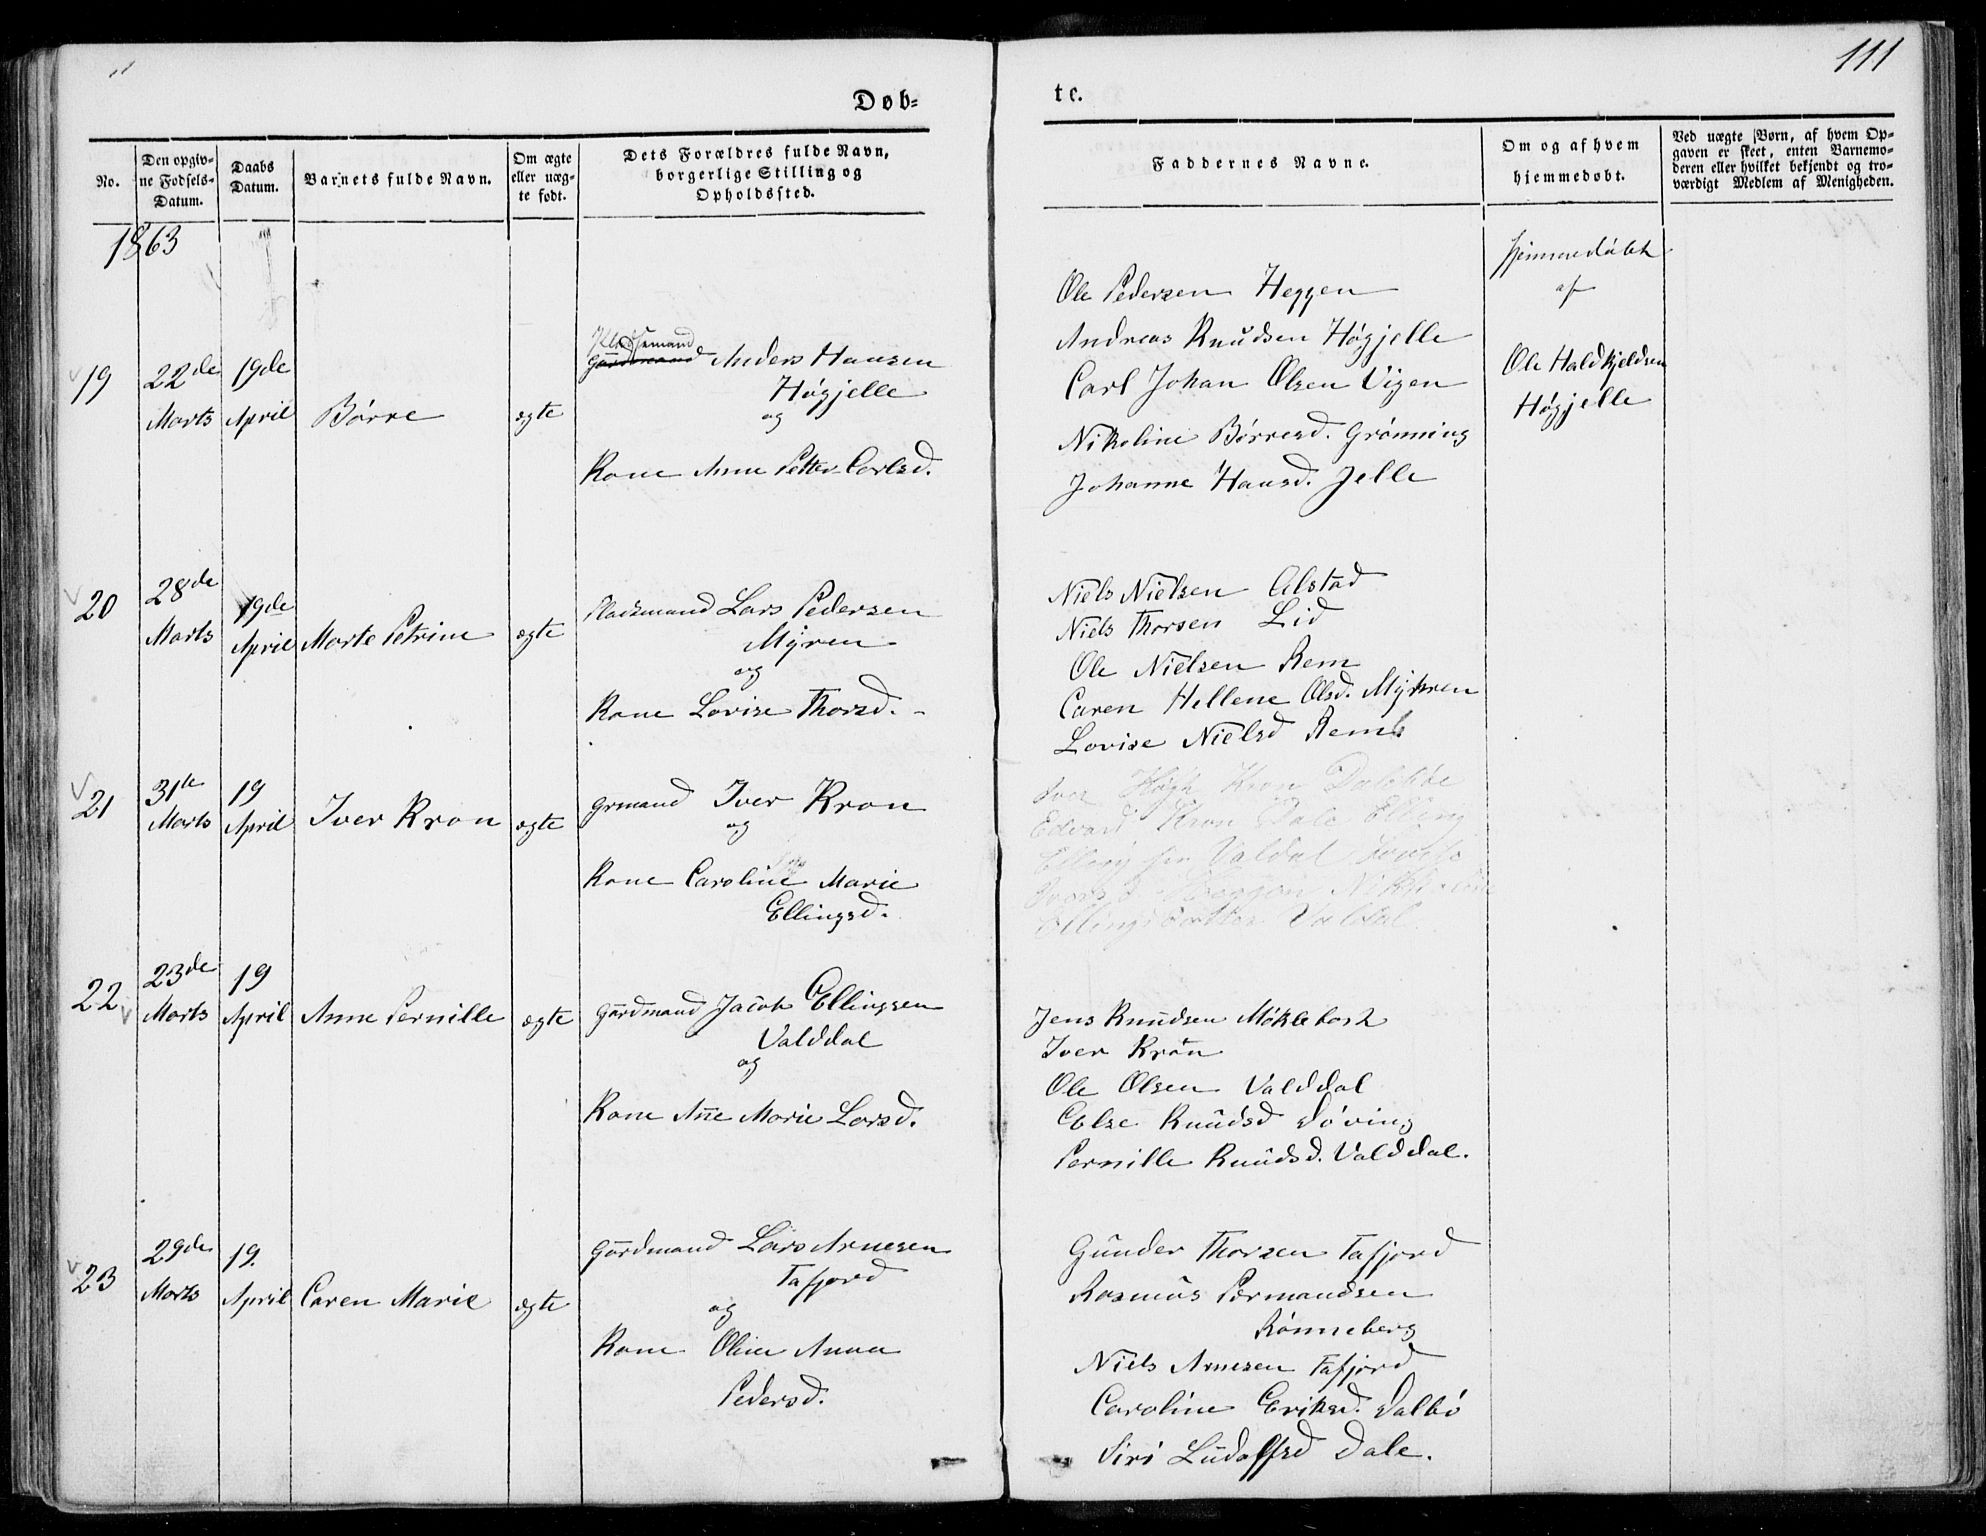 111
Døb=
te.
No.
Den opgiv-
ne Fødsels-
Datum.
Daabs
Datum.
Barnets fulde Navn.
Om ægte
eller uæg-
te født.
Dets Forældres fulde Navn,
borgerlige Stilling og
Opholdssted.
Faddernes Navne.
Om og af hvem
hjemmedøbt.
Ved uægte Børn, af hvem Op-
gaven er skeet, enten Barnemo-
deren eller hvilket bekjendt og tro-
værdigt Medlem af Menigheden.
1863
19
22de
Marts
19de
April
Børre
ægte
Pladsemand
Gaardmand Anders Hansen
Høgjelle
og
Kone Anne Petter Carlsd.
Ole Pedersen Heggen
Andreas Knudsen Høgjelle
Carl Johan Olsen Vigen
Nikoline Børresd. Grønning
Johanne Hansd. Jelle
Hjemmedøbt
af
Ole Haldkjeldsen
Høgjelle
20
28de
Marts
19de
April
Marte Petrine
ægte
Pladsmand Lars Pedersen
Myren
og
Kone Lovise Thorsd.
Niels Nielsen Alstad
Niels Thorsen Lid
Ole Nielsen Rem
Caren Hellene Olsd. Myhren
Lovise Nielsd Rem
21
31te
Marts
19
April
Iver Kron
ægte
Grmand Iver Kron
og
Kone Caroline Marie
Ellingsd.
Høgh Kron
Edvard Kron Dale Elling
Valdal Lovise
Ellingsdatter Valdal
22
23de
Marts
19
April
Anne Pernille
ægte
Gårdmand Jacob Ellingsen
Valddal
og
Kone Añe Marie Larsd.
Jens Knudsen Møklebost
Iver Kron
Ole Olsen Valddal
Else Knudsd Døving
Pernille Knudsd. Valddal.
23
29de
Marts
19.
April
Caren Marie
ægte
Gårdmand Lars Arnesen
Tafjord
og
Kone Oline Anna
Pedersd.
Gunder Thorsen Tafjord
Rasmus Permandsen
Rønneberg
Niels Arnesen Tafjord
Caroline Eriksd. Dalbø
Siri Ludolfsd Dale.